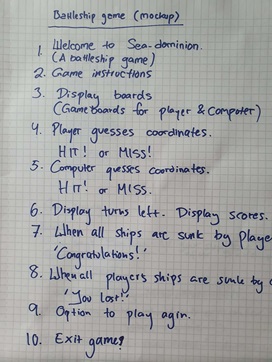 Battleship game (mockup)
1. Welcome to Sea-dominion.
(A battleship game)
2. Game instructions
3. Display boards
(Game Boards for player & Computer)
4. Player guesses coordinates.
HIT! or MISS!
5. Computer guesses coordinates.
HIT! or MISS.
6. Display turns left. Display scores.
7. When all ships are sunk by playe
'Congratulations!'
8. When all players ships are sunk by
'You lost!'
9. Option to play agin.
10. Exit game?